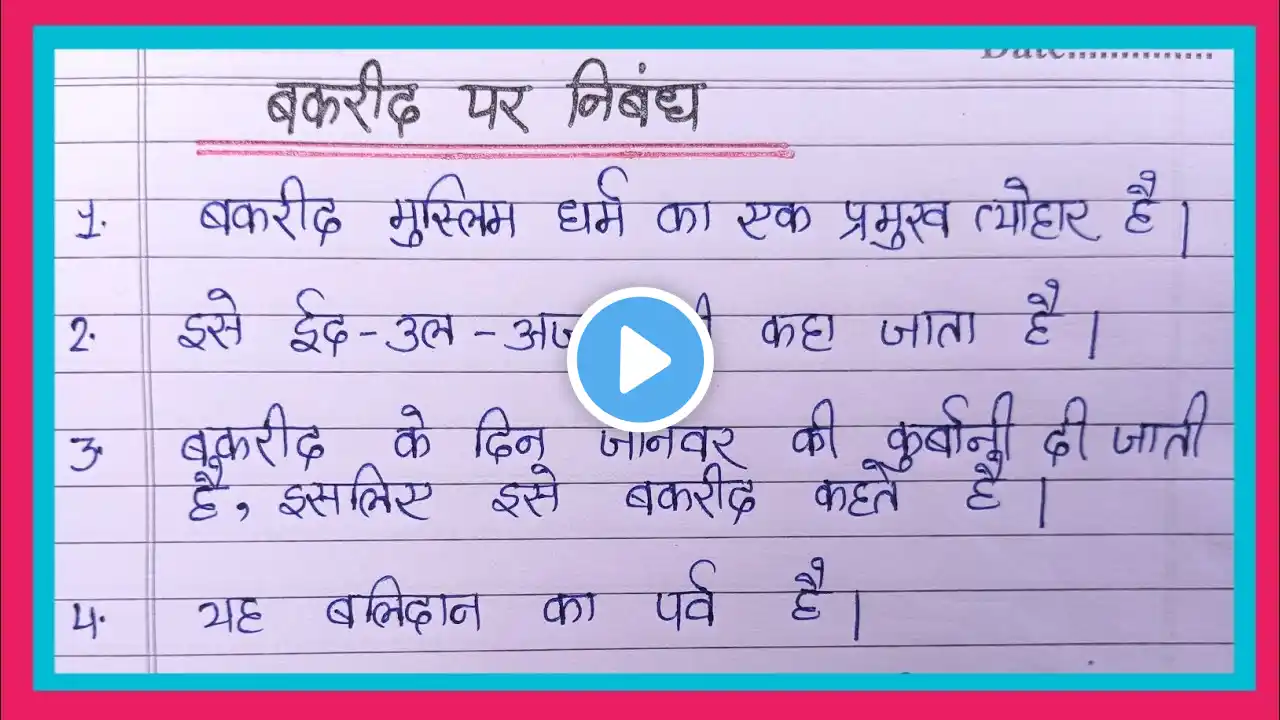 Date..............
बकरीद पर निबंध
1. बकरीद मुस्लिम धर्म का एक प्रमुख त्योहार है।
2. इसे ईद-उल-अज कहा जाता है।
3. बकरीद के दिन जानवर की कुर्बानी दी जाती
है, इसलिए इसे बकरीद कहते है।
4. यह बलिदान का पर्व है।